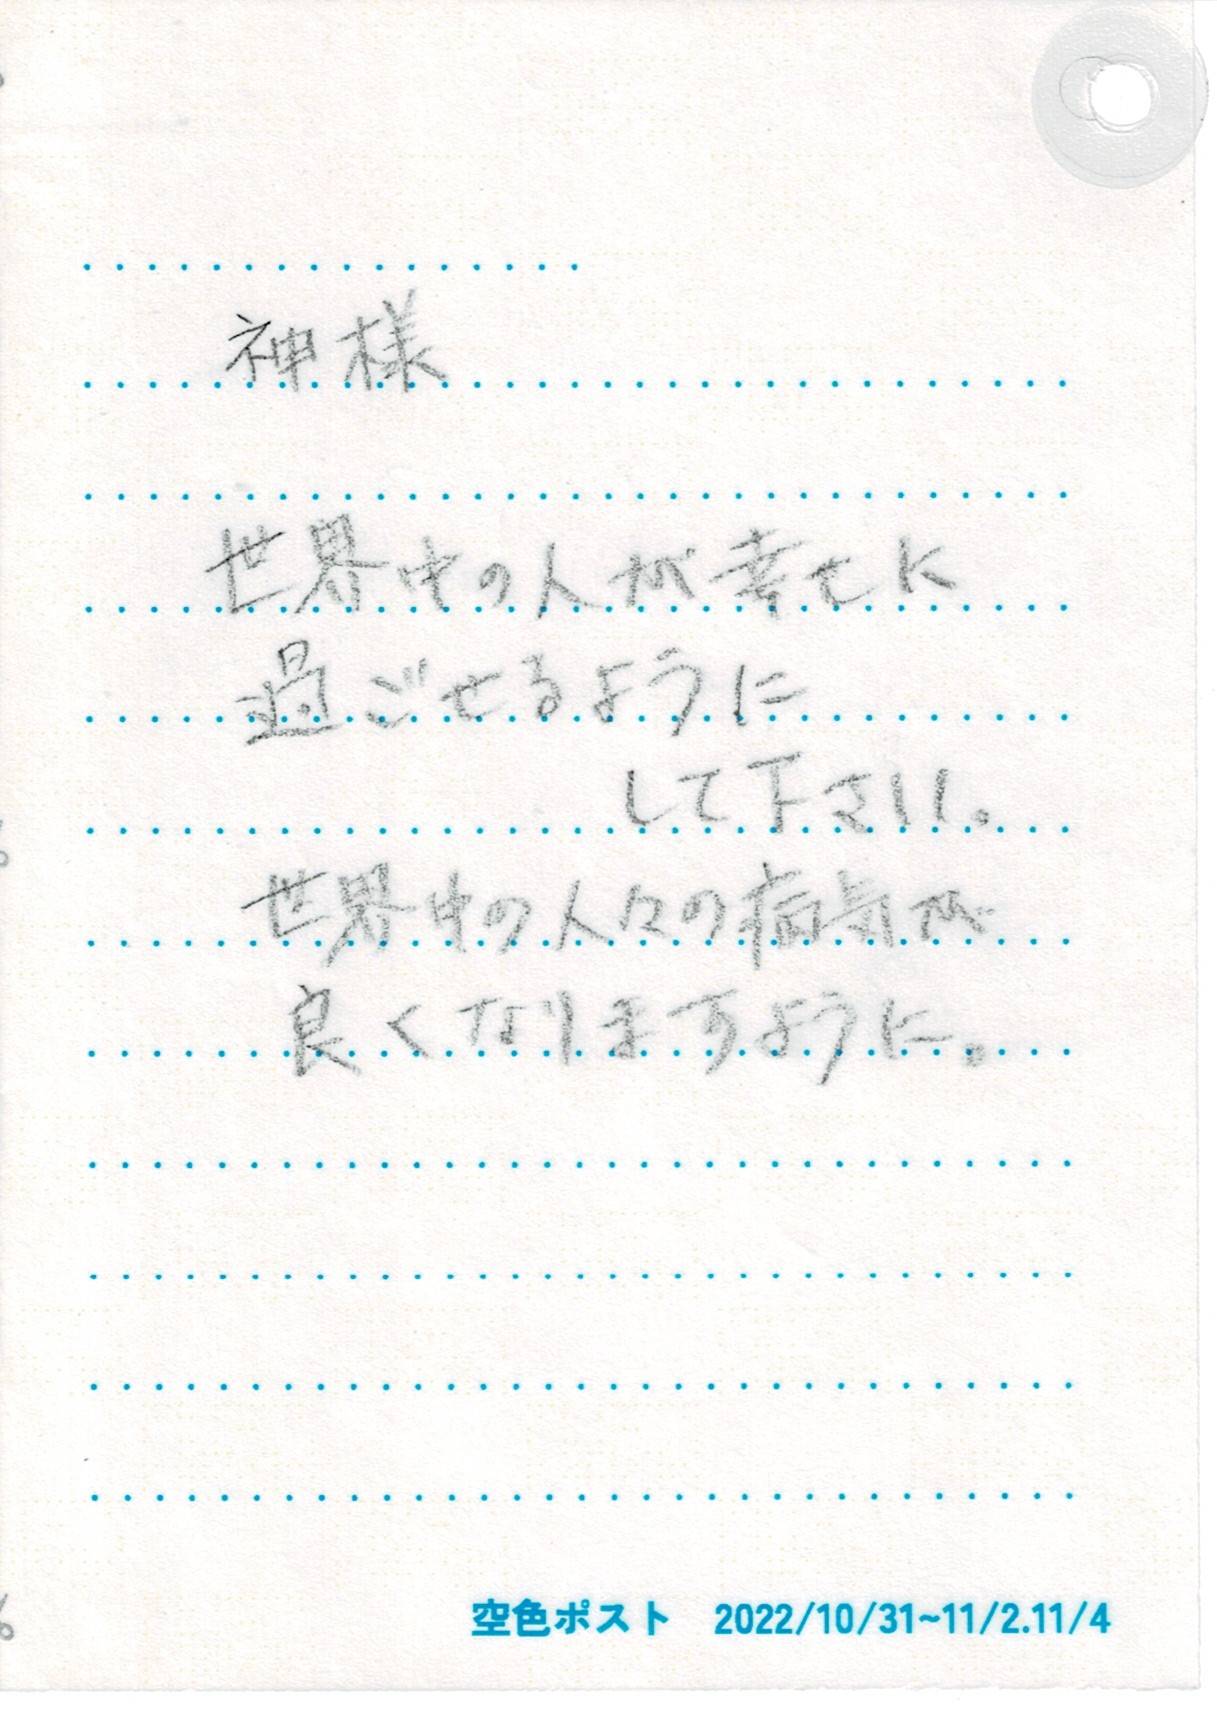 神様
世界中の人が幸せに
過ごせるように
して下さい。
世界中の人々の病気が
良くなりますように。
空色ポスト 2022/10/31~11/2.11/4